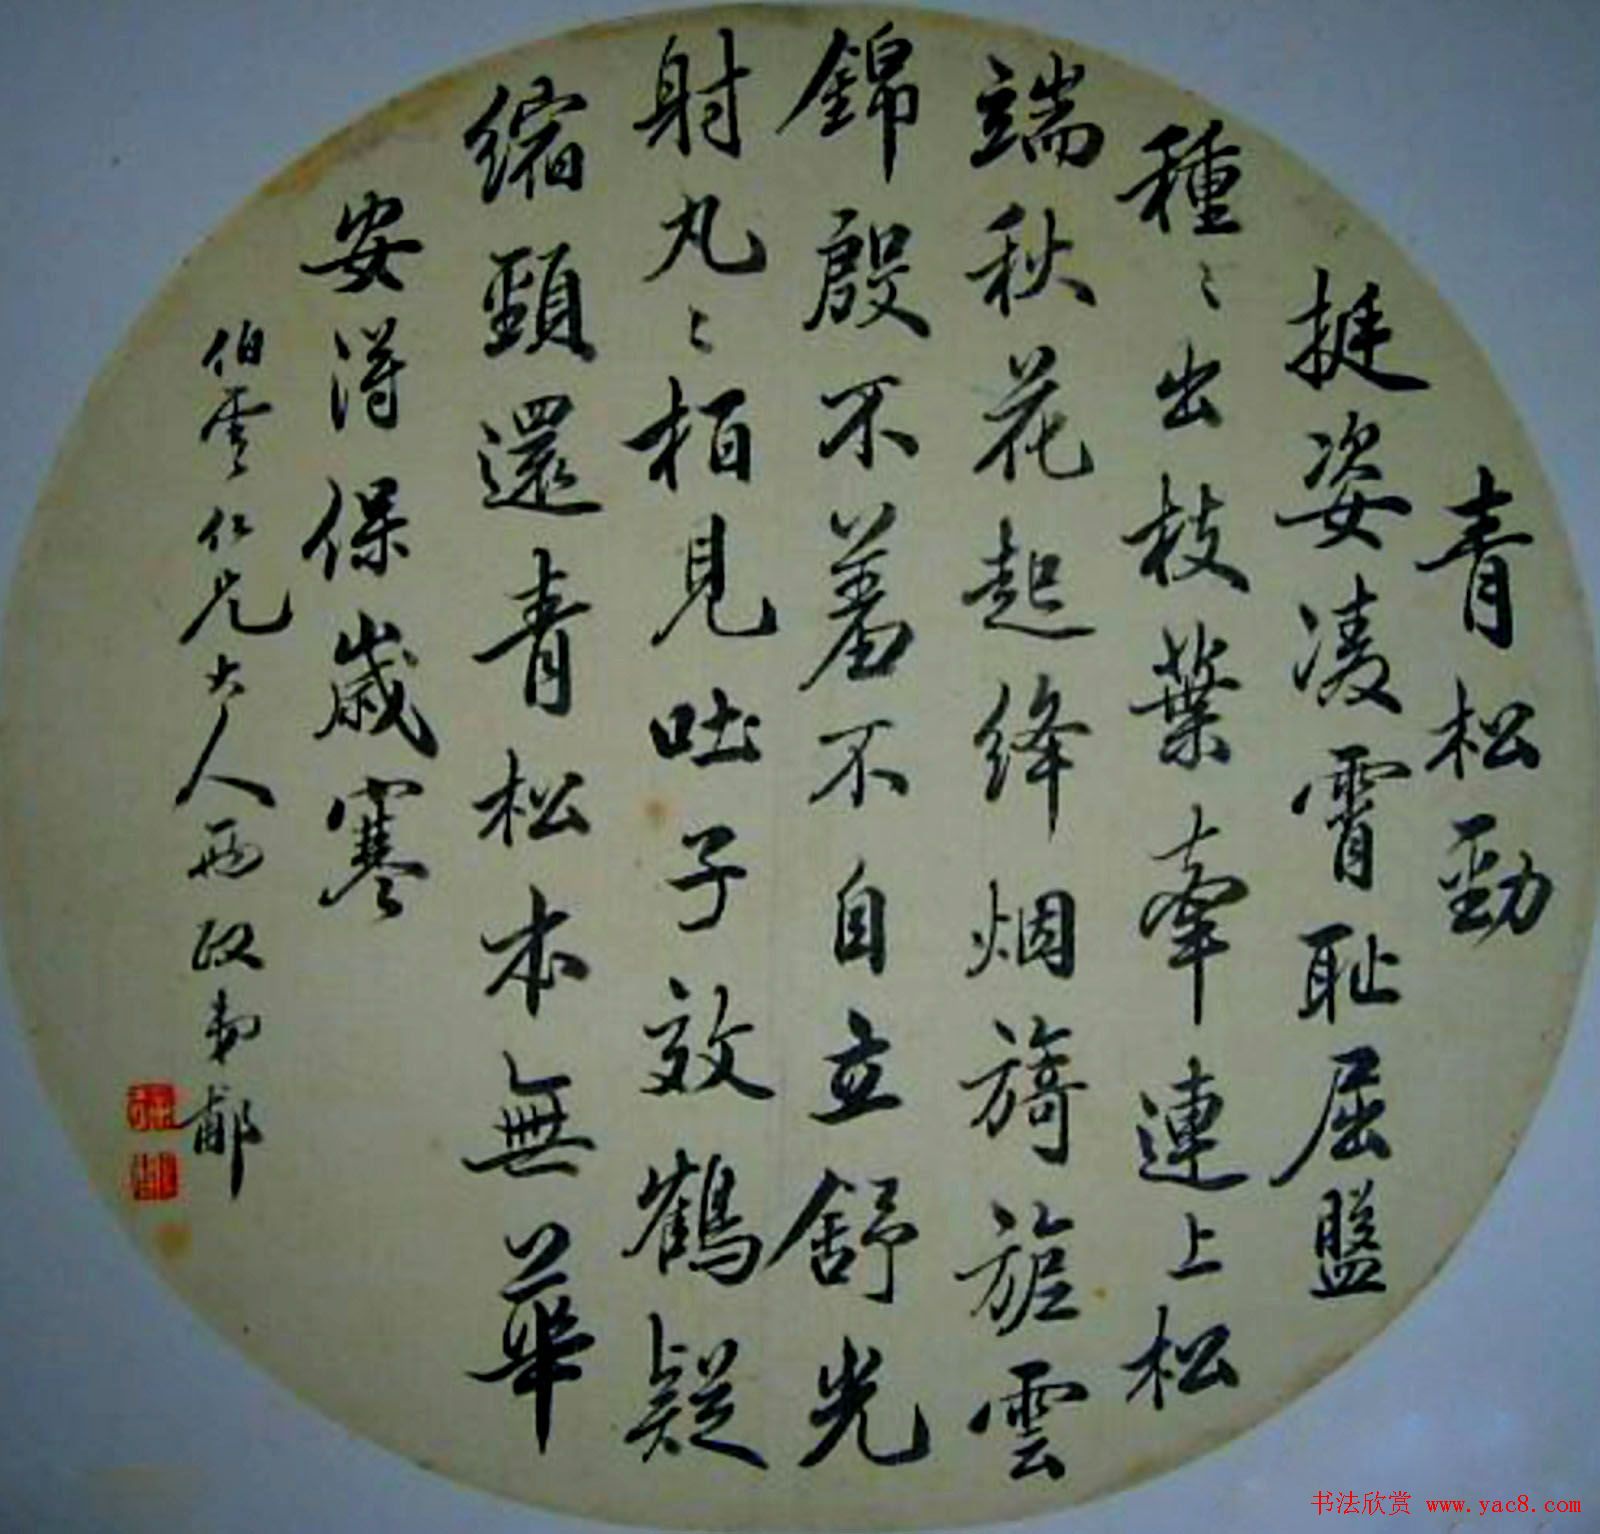 青松勁
挺姿凌霄恥屈盤
種〻出枝葉牽連上松
端秋花起絳烟旖旎雲
錦殷不羞不自立舒光
射丸〻柏見吐子效鶴疑
縮頸還青松本無華
安得保歲寒
伯雲仁兄大人兩政弟郙
书法欣赏 www.yac8.com